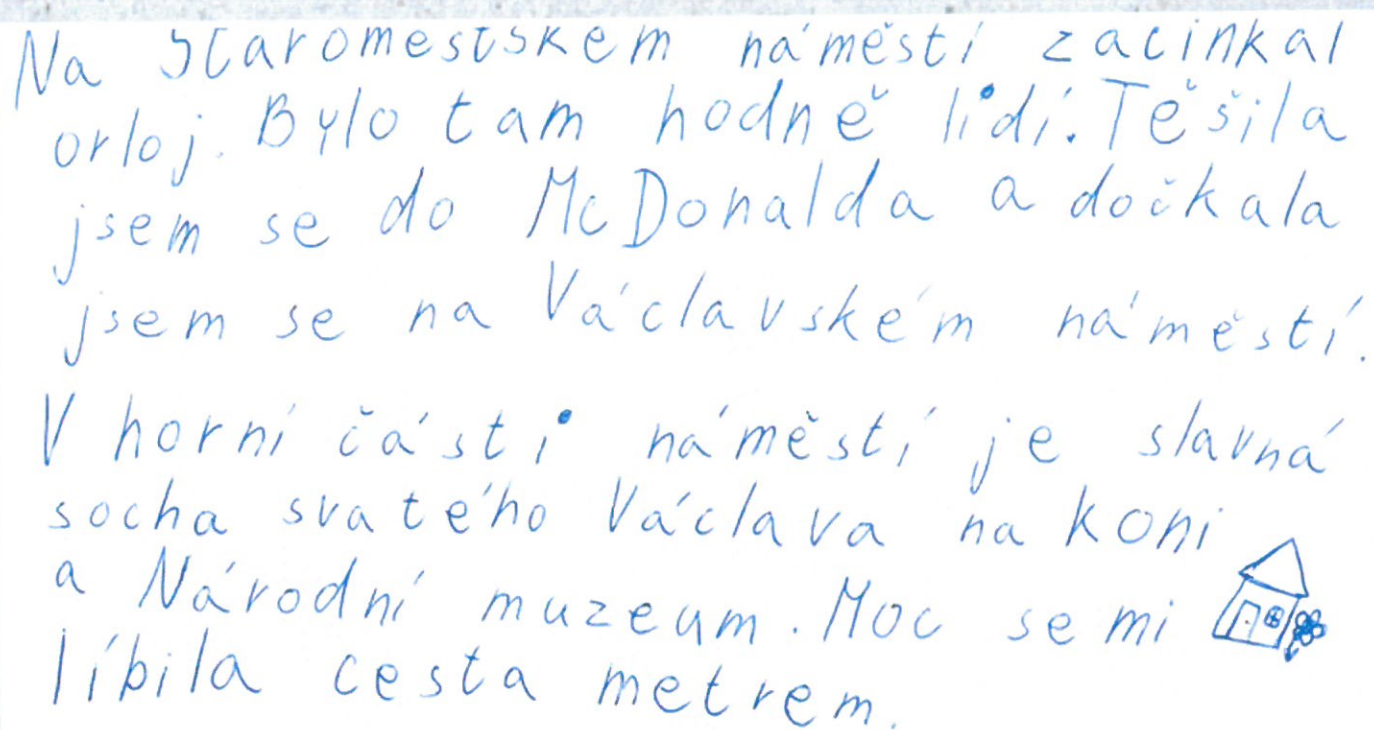 Na Staroměstském náměstí zacinkal
orloj. Bylo tam hodně lidí. Těšila
jsem se do McDonalda a dočkala
jsem se na Václavském náměstí.
V horní části náměstí je slavná
socha svatého Václava na koni
a Národní muzeum. Moc se mi
líbila cesta metrem.